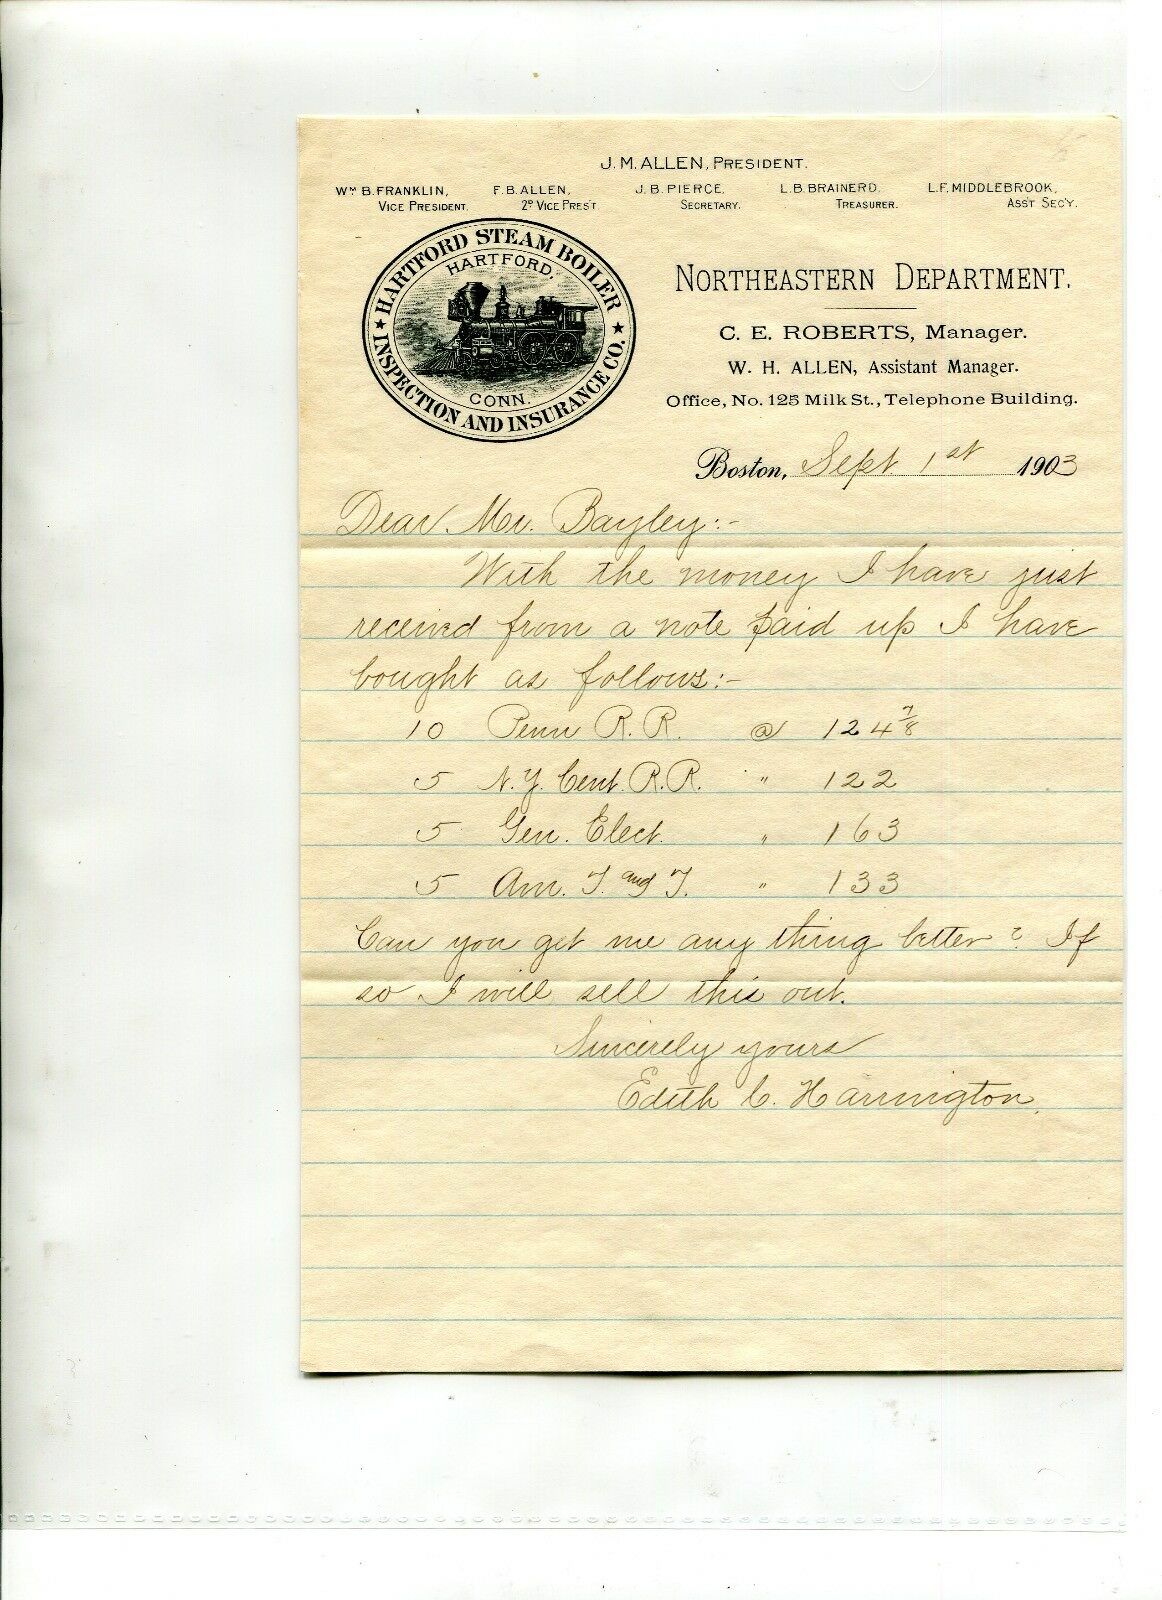 J. M. ALLEN, PRESIDENT.
Wᴹ B. FRANKLIN, F. B. ALLEN, J. B. PIERCE, L. B. BRAINERD, L. F. MIDDLEBROOK,
VICE PRESIDENT. 2ᴰ VICE PRES'T SECRETARY. TREASURER. ASS'T SEC'Y.
HARTFORD STEAM BOILER
INSPECTION AND INSURANCE CO.
HARTFORD,
CONN.
NORTHEASTERN DEPARTMENT.
C. E. ROBERTS, Manager.
W. H. ALLEN, Assistant Manager.
Office, No. 125 Milk St., Telephone Building.
Boston, Sept 1st 1903
Dear Mr. Bayley:-
With the money I have just
received from a note paid up I have
bought as follows:-
10 Penn R. R. @ 124 7/8
5 N. Y. Cent. R. R. " 122
5 Gen. Elect. " 163
5 Am. T. and T. " 133
Can you get me any thing better? If
so I will sell this out.
Sincerely yours
Edith C. Harrington.